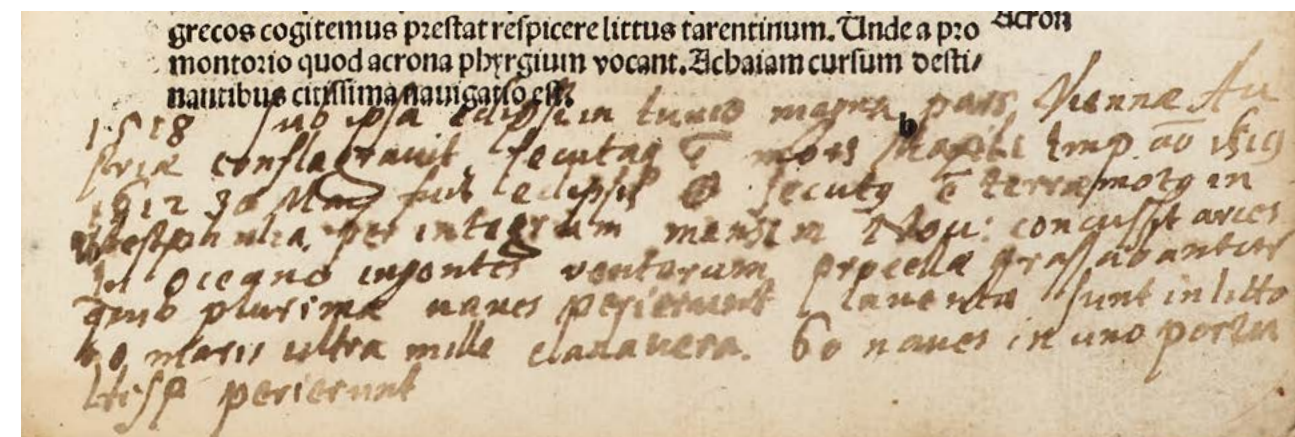 grecos cogitemus prestat respicere littus tarentinum. Unde a pro Acron
montorio quod acrona phyrgium vocant. Achaiam cursum desti/
nantibus citissima nauigatio est.
1518 sub ipsa eclipsi in iunio magna pars Viennæ Au
striæ conflagrauit, secuta q̄ ē mors Maxili Imp. ao 1519
1612 30 Maij fuit eclipsis secutq ē terræmotq in
Westphalia, per integrum mensem Nou: concussit arces.
In oceano ingentes ventorum procellæ grassabantur
quib plurimæ naues perierunt inuenta sunt in litto
re maris ultra mille cadauera. 60 naues in uno portu
Hisp perierunt